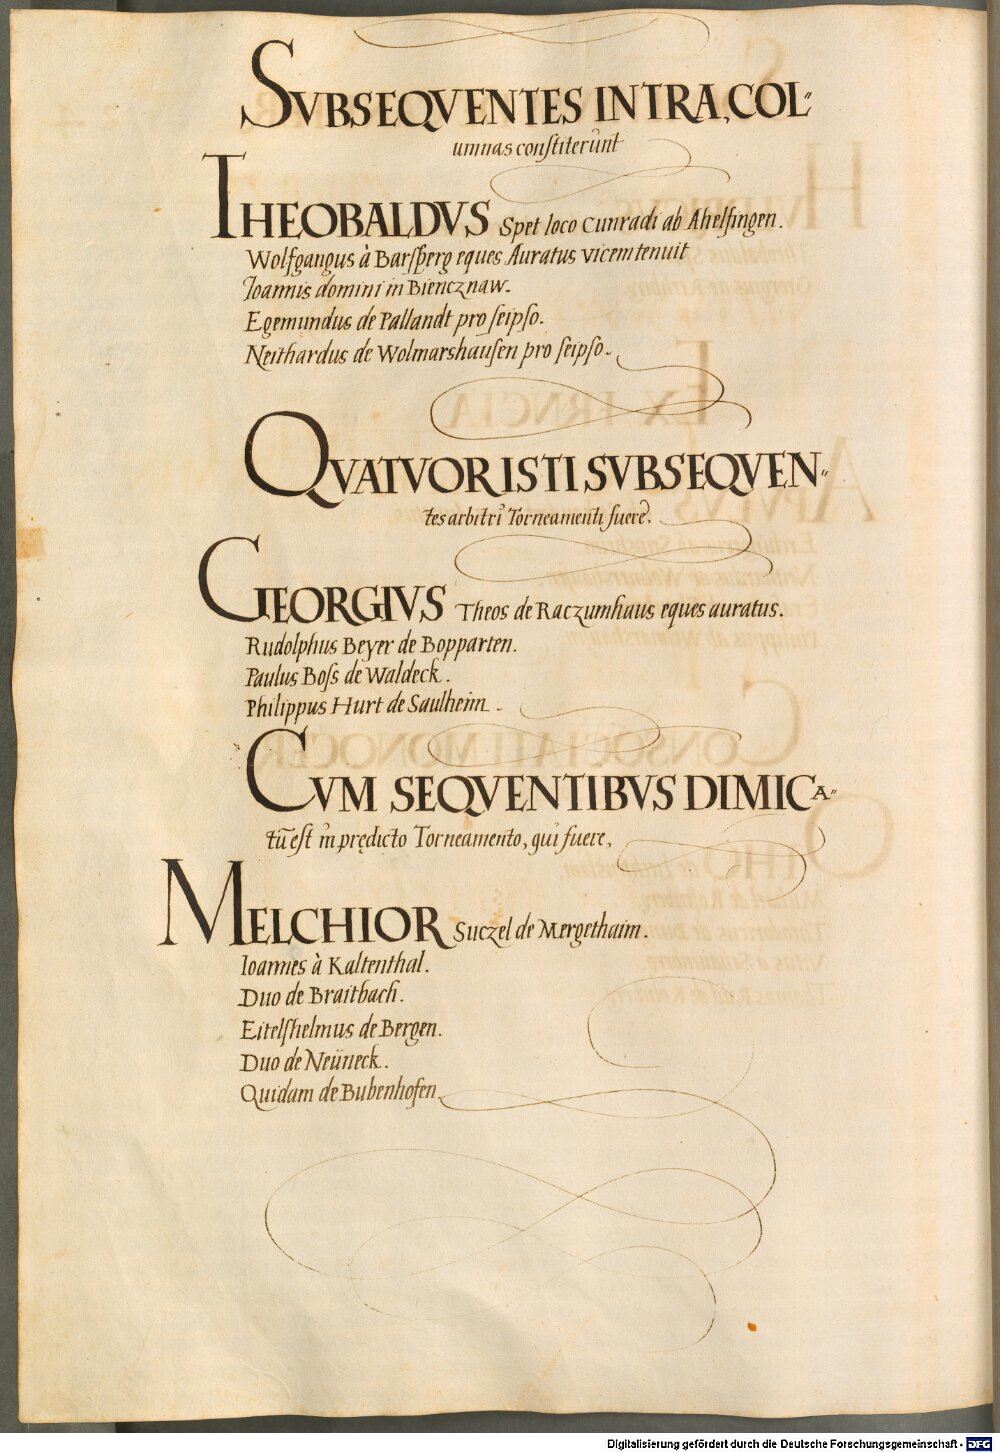 SVBSEQVENTES INTRA, COL"
umnas constiterunt
THEOBALDVS Spet loco Cunradi ab Ahelfingen.
Wolfgangus à Barsberg eques Auratus vicem tenuit
Ioannis domini in Biencznaw.
Egemundus de Pallandt pro seipso.
Neithardus de Wolmarshausen pro seipso.
QVATVOR ISTI SVBSEQVEN"
tes arbitri Torneamenti fuere.
GEORGIVS Theos de Raczumhaus eques auratus.
Rudolphus Beyer de Bopparten.
Paulus Boss de Waldeck.
Philippus Hurt de Saulheim.
CVM SEQVENTIBVS DIMICA"
tū est in prędicto Torneamento, qui fuere,
MELCHIOR Suczel de Mergethaim.
Ioannes à Kaltenthal.
Duo de Braitbach.
Eitelshelmus de Bergen.
Duo de Neüneck.
Quidam de Bubenhofen.
Digitalisierung gefördert durch die Deutsche Forschungsgemeinschaft - DFG